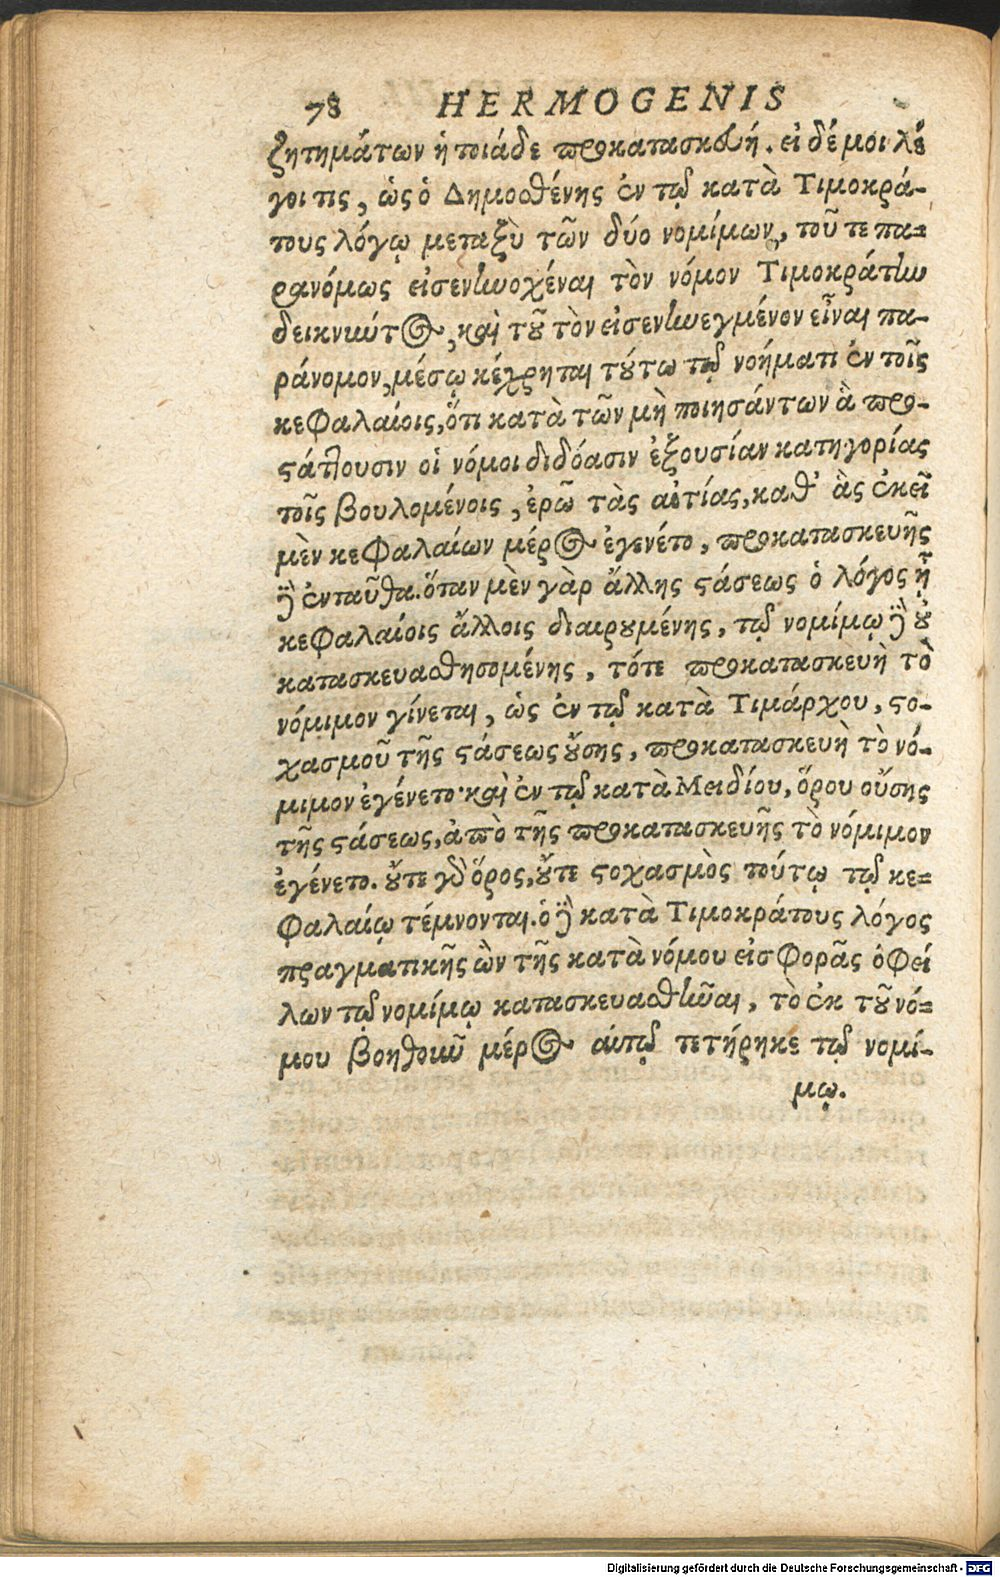 78 HERMOGENIS
ζητημάτων ἡ ποιάδε προκατασκευή. εἰ δέ μοι λέ
γοι τις, ὡς ὁ Δημοσθένης ἐν τῷ κατὰ Τιμοκρά-
τους λόγῳ μεταξὺ τῶν δύο νομίμων, τοῦ τε πα-
ρανόμως εἰσενηνοχέναι τὸν νόμον Τιμοκράτην
δεικνύντος, καὶ τοῦ τὸν εἰσενηνεγμένον εἶναι πα-
ράνομον, μέσῳ κέχρηται τούτω τῷ νοήματι ἐν τοῖς
κεφαλαίοις, ὅτι κατὰ τῶν μὴ ποιησάντων ἃ προ-
στάττουσιν οἱ νόμοι διδόασιν ἐξουσίαν κατηγορίας
τοῖς βουλομένοις, ἐρῶ τὰς αἰτίας, καθ’ ἃς ἐκεῖ
μὲν κεφαλαίων μέρος ἐγενέτο, προκατασκευῆς
δὲ ἐνταῦθα. ὅταν μὲν γὰρ ἄλλης στάσεως ὁ λόγος ᾖ
κεφαλαίοις ἄλλοις διαιρουμένης, τῷ νομίμῳ δὲ οὐ
κατασκευασθησομένης, τότε προκατασκευὴ τὸ
νόμιμον γίνεται, ὡς ἐν τῷ κατὰ Τιμάρχου, στο-
χασμοῦ τῆς στάσεως οὔσης, προκατασκευὴ τὸ νό-
μιμον ἐγένετο· καὶ ἐν τῷ κατὰ Μειδίου, ὅρου οὔσης
τῆς στάσεως, ἀπὸ τῆς προκατασκευῆς τὸ νόμιμον
ἐγένετο. οὔτε γὰρ ὅρος, οὔτε στοχασμὸς τούτῳ τῷ κε-
φαλαίῳ τέμνονται. ὁ δὲ κατὰ Τιμοκράτους λόγος
πραγματικῆς ὢν τῆς κατὰ νόμου εἰσφορᾶς ὀφεί
λων τῷ νομίμῳ κατασκευασθῆναι, τὸ ἐκ τοῦ νό-
μου βοηθοῦν μέρος αὐτῷ τετήρηκε τῷ νομί-
μῳ.
Digitalisierung gefördert durch die Deutsche Forschungsgemeinschaft - DFG